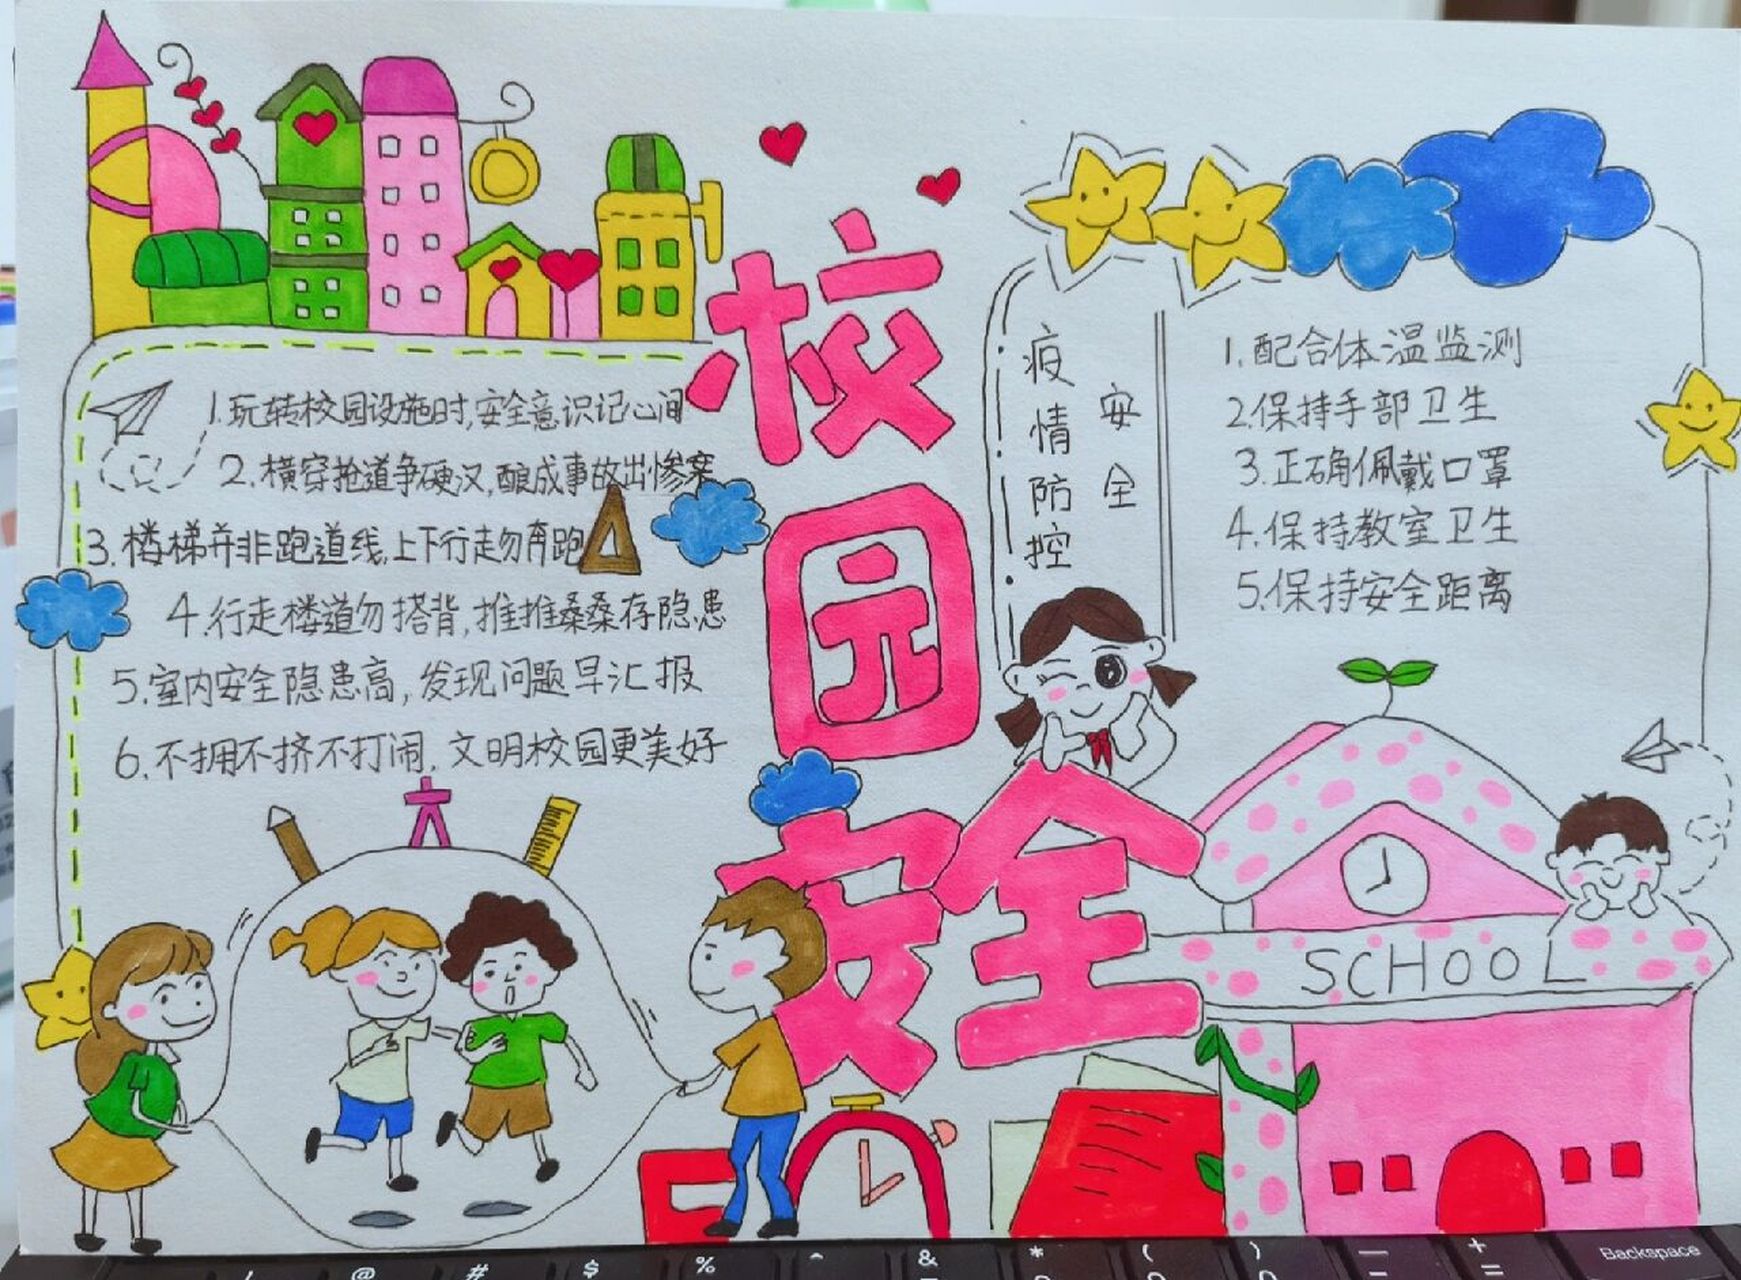 校园安全
1.玩转校园设施时,安全意识记心间
2.横穿抢道争硬汉,酿成事故出惨案
3.楼梯并非跑道线,上下行走勿奔跑
4.行走楼道勿搭背,推推桑桑存隐患
5.室内安全隐患高,发现问题早汇报
6.不拥不挤不打闹.文明校园更美好
疫情防控
安全
1.配合体温监测
2.保持手部卫生
3.正确佩戴口罩
4.保持教室卫生
5.保持安全距离
SCHOOL
@ # $ % ^ & * ( ) — + =
Backspace